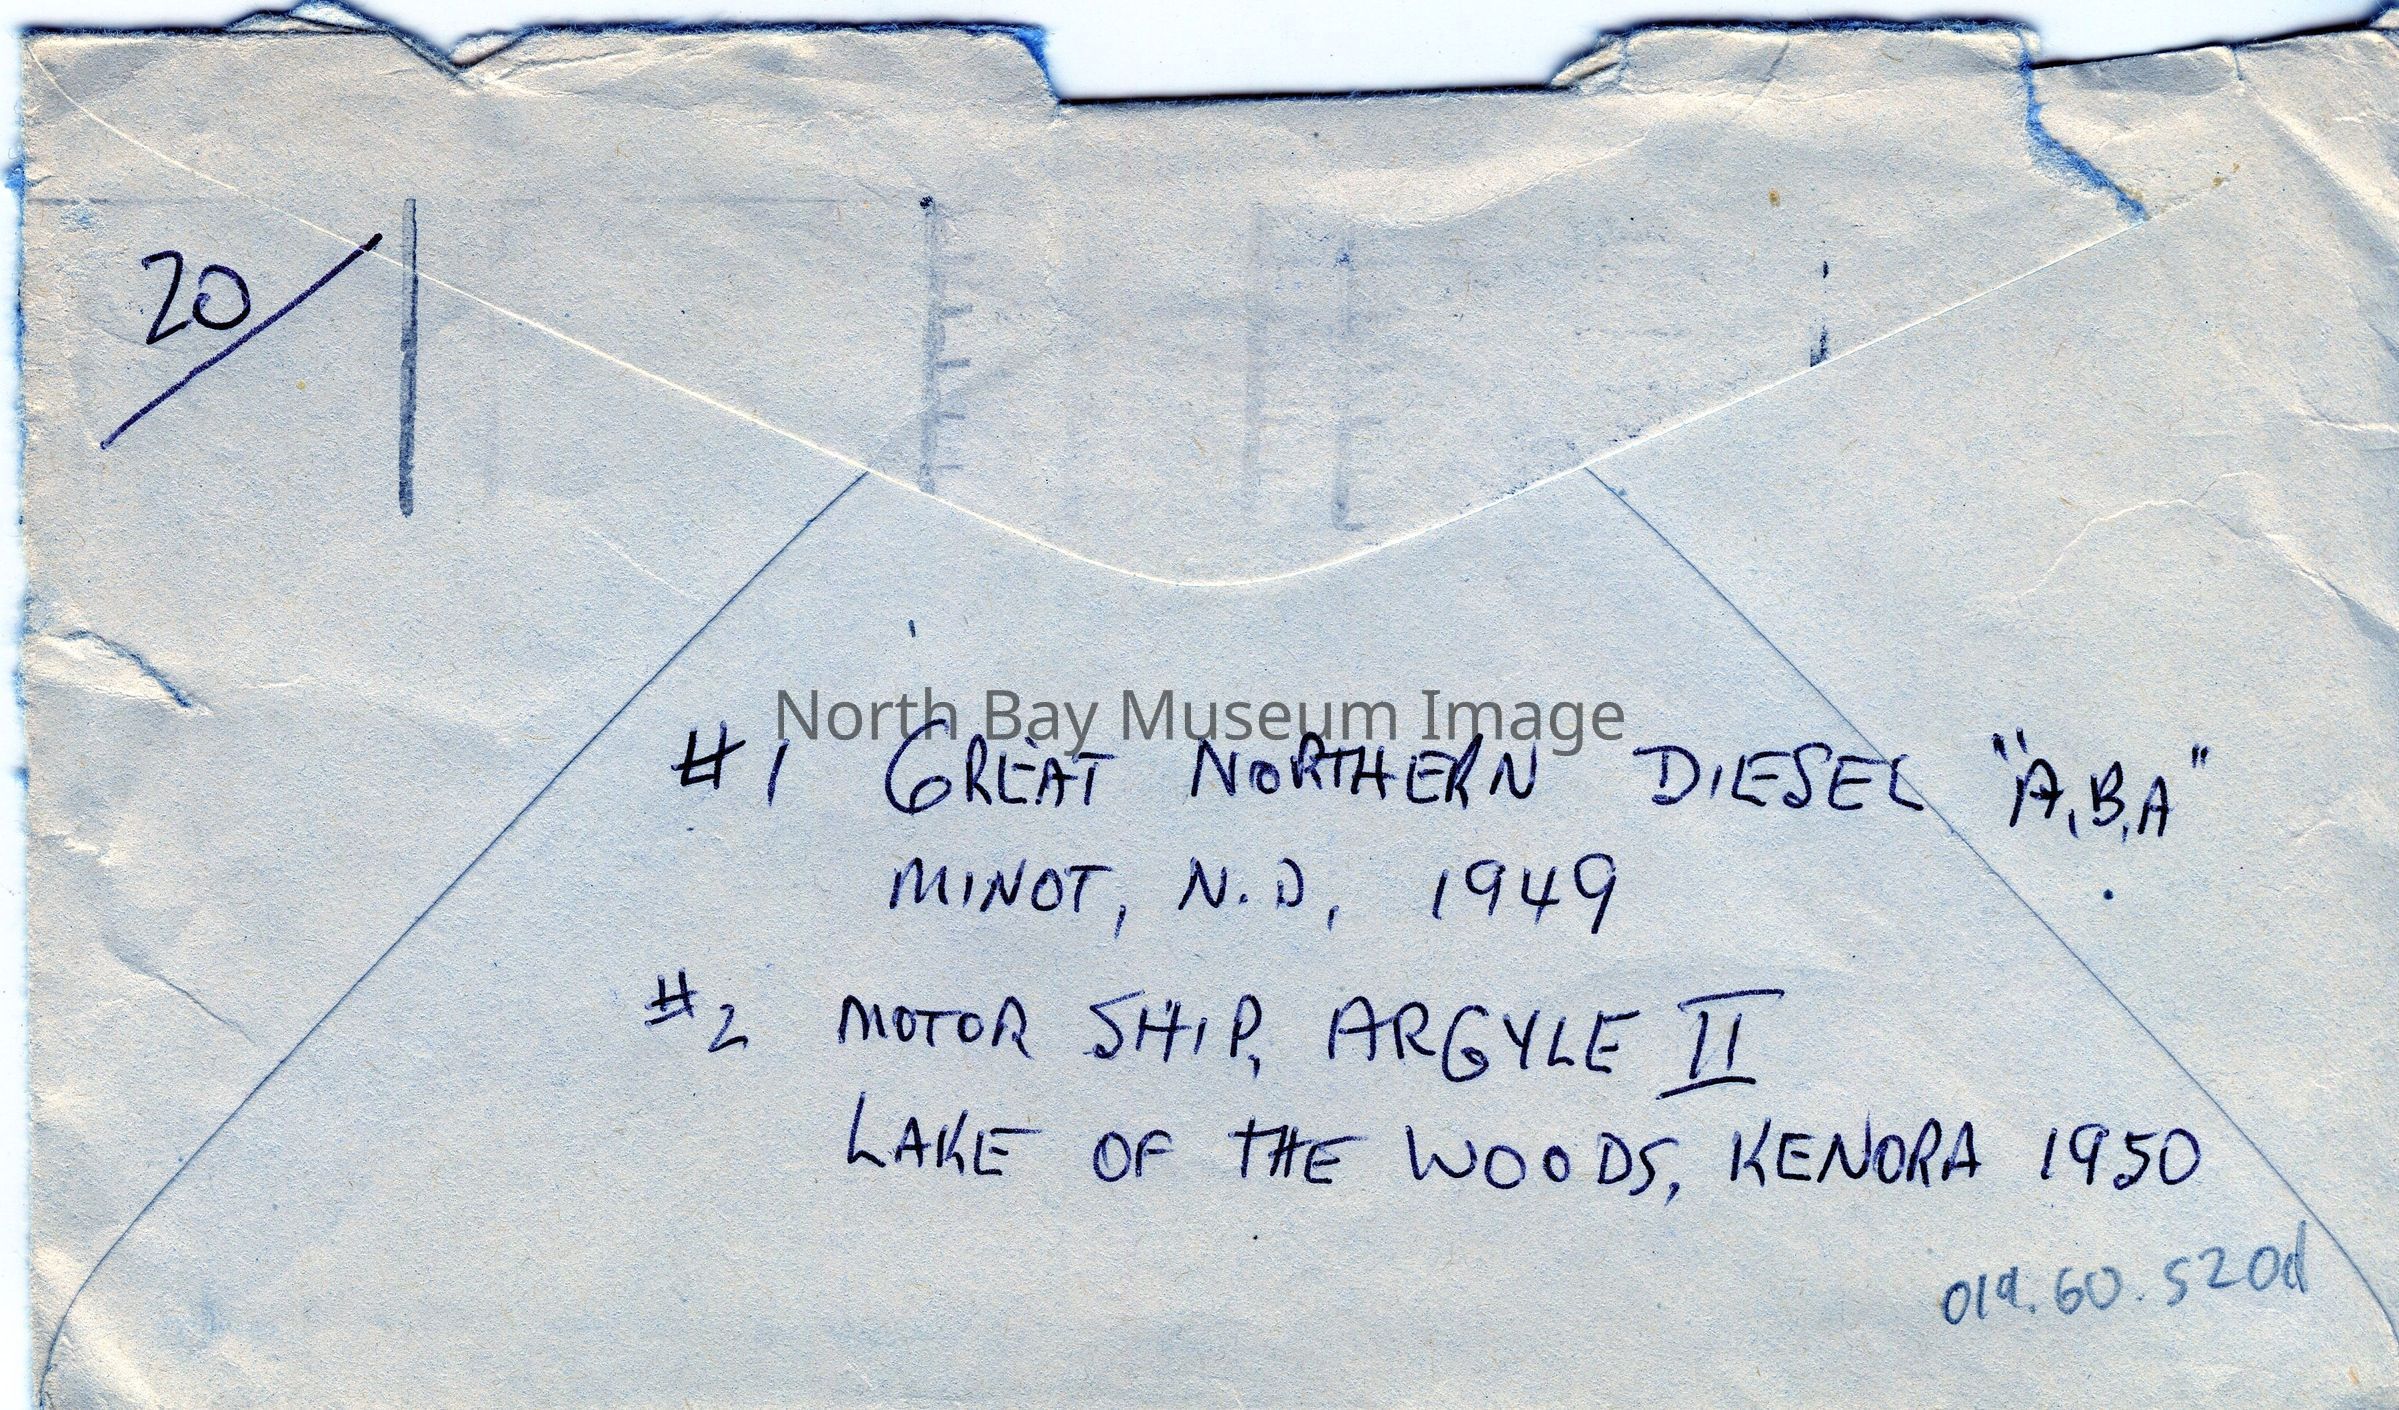 20
North Bay Museum Image
#1 GREAT NORTHERN DIESEL "A,B,A"
MINOT, N.D, 1949
#2 MOTOR SHIP, ARGYLE II
LAKE OF THE WOODS, KENORA 1950
019.60.520d